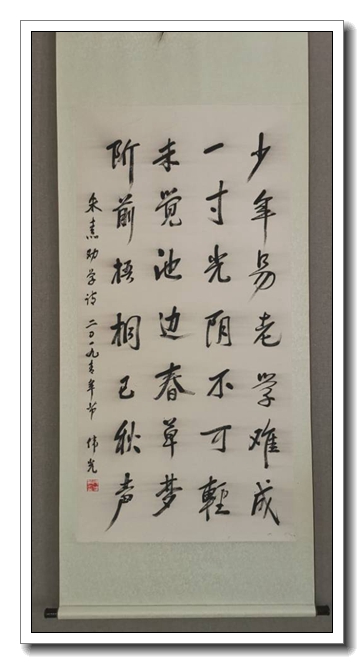 少年易老学难成
一寸光阴不可輕
未觉池边春草梦
阶前梧桐已秋声
朱熹劝学诗 二〇一九年春节 伟光